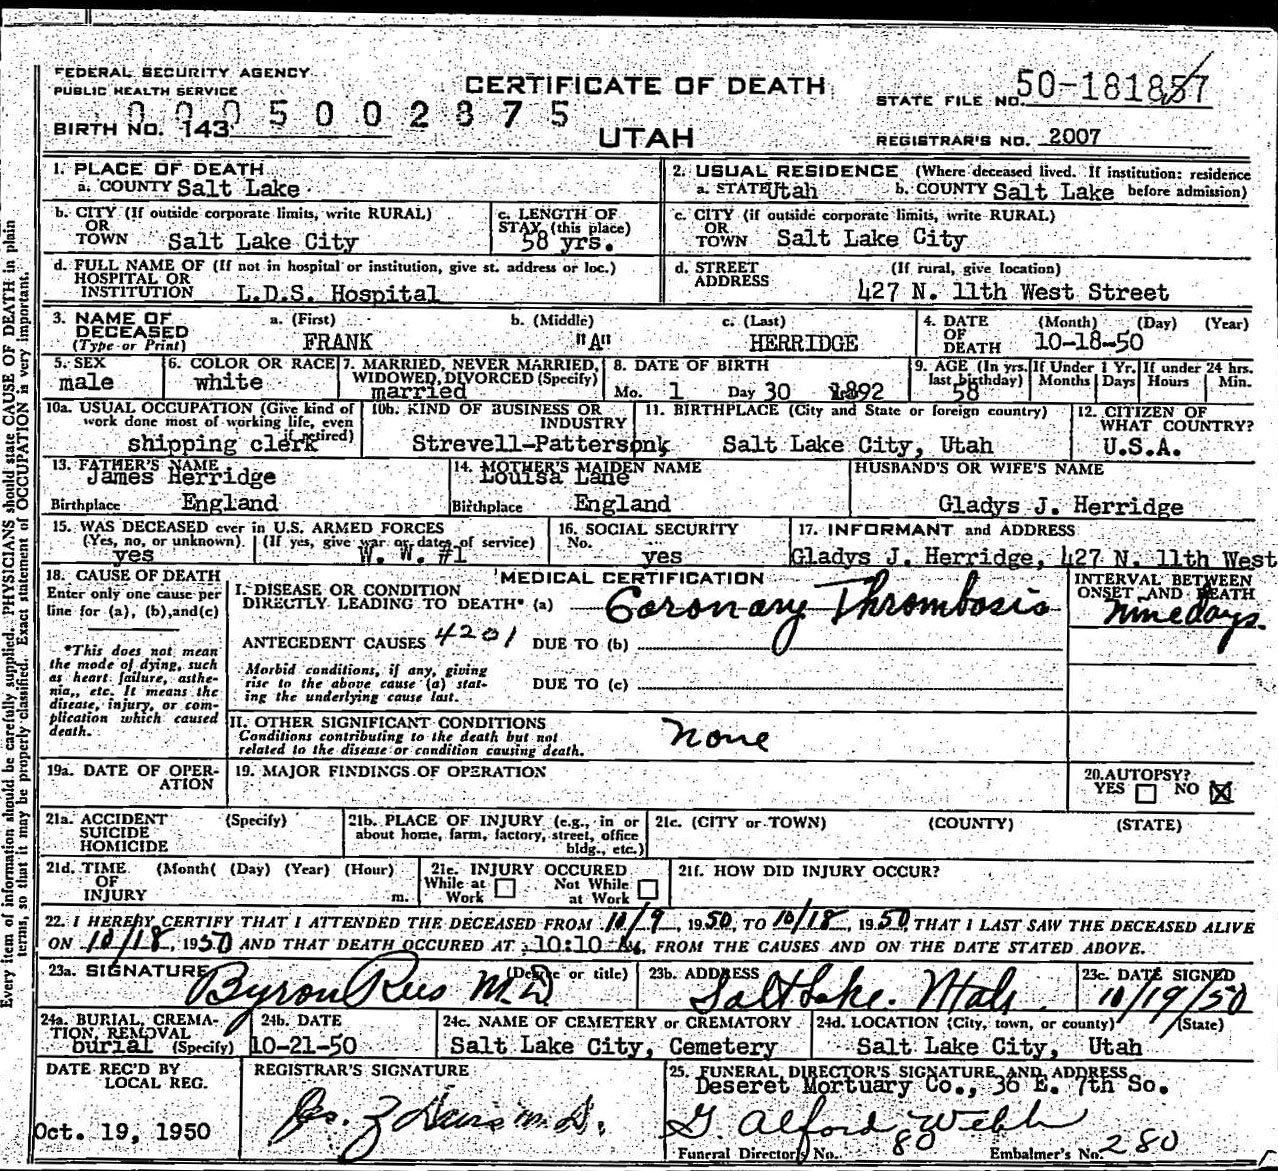 FEDERAL SECURITY AGENCY
PUBLIC HEALTH SERVICE
CERTIFICATE OF DEATH
UTAH
STATE FILE NO. 50-181857
0005002875
BIRTH NO. 143
REGISTRAR'S NO. 2007
1. PLACE OF DEATH
a. COUNTY Salt Lake
2. USUAL RESIDENCE (Where deceased lived. If institution: residence before admission)
a. STATE Utah b. COUNTY Salt Lake
b. CITY (If outside corporate limits, write RURAL)
OR
TOWN Salt Lake City
c. LENGTH OF
STAY (this place)
58 yrs.
c. CITY (if outside corporate limits, write RURAL)
OR
TOWN Salt Lake City
d. FULL NAME OF (If not in hospital or institution, give st. address or loc.)
HOSPITAL OR
INSTITUTION L.D.S. Hospital
d. STREET (If rural, give location)
ADDRESS
427 N. 11th West Street
3. NAME OF
DECEASED
(Type or Print)
a. (First) b. (Middle) c. (Last)
FRANK "A" HERRIDGE
4. DATE (Month) (Day) (Year)
OF
DEATH 10-18-50
5. SEX
male
6. COLOR OR RACE
white
7. MARRIED, NEVER MARRIED,
WIDOWED, DIVORCED (Specify)
married
8. DATE OF BIRTH
Mo. 1 Day 30 1892
9. AGE (In yrs. last birthday)
58
If Under 1 Yr.
Months Days
If under 24 hrs.
Hours Min.
10a. USUAL OCCUPATION (Give kind of
work done most of working life, even
if retired)
shipping clerk
10b. KIND OF BUSINESS OR
INDUSTRY
Strevell-Pattersonk
11. BIRTHPLACE (City and State or foreign country)
Salt Lake City, Utah
12. CITIZEN OF
WHAT COUNTRY?
U.S.A.
13. FATHER'S NAME
James Herridge
Birthplace England
14. MOTHER'S MAIDEN NAME
Louisa Lane
Birthplace England
HUSBAND'S OR WIFE'S NAME
Gladys J. Herridge
15. WAS DECEASED ever in U.S. ARMED FORCES
(Yes, no, or unknown) (If yes, give war or dates of service)
yes W. W. #1
16. SOCIAL SECURITY
No. yes
17. INFORMANT and ADDRESS
Gladys J. Herridge, 427 N. 11th West
18. CAUSE OF DEATH
Enter only one cause per
line for (a), (b), and (c)
*This does not mean
the mode of dying, such
as heart failure, asthe-
nia,, etc. It means the
disease, injury, or com-
plication which caused
death.
MEDICAL CERTIFICATION
I. DISEASE OR CONDITION
DIRECTLY LEADING TO DEATH* (a) Coronary Thrombosis
INTERVAL BETWEEN
ONSET AND DEATH
Nine days.
ANTECEDENT CAUSES 4201 DUE TO (b)
Morbid conditions, if any, giving
rise to the above cause (a) stat-
ing the underlying cause last.
DUE TO (c)
II. OTHER SIGNIFICANT CONDITIONS
Conditions contributing to the death but not
related to the disease or condition causing death.
None
19a. DATE OF OPER-
ATION
19. MAJOR FINDINGS OF OPERATION
20. AUTOPSY?
YES NO X
21a. ACCIDENT (Specify)
SUICIDE
HOMICIDE
21b. PLACE OF INJURY (e.g., in or
about home, farm, factory, street, office
bldg., etc.)
21c. (CITY or TOWN) (COUNTY) (STATE)
21d. TIME (Month( (Day) (Year) (Hour)
OF
INJURY m.
21e. INJURY OCCURED
While at Work Not While at Work
21f. HOW DID INJURY OCCUR?
22. I HEREBY CERTIFY THAT I ATTENDED THE DECEASED FROM 10/9, 1950, TO 10/18, 1950, THAT I LAST SAW THE DECEASED ALIVE
ON 10/18, 1950 AND THAT DEATH OCCURED AT 10:10 M., FROM THE CAUSES AND ON THE DATE STATED ABOVE.
23a. SIGNATURE (Degree or title)
Byron Rees M.D.
23b. ADDRESS
Salt Lake. Utah.
23c. DATE SIGNED
10/19/50
24a. BURIAL, CREMA-
TION, REMOVAL
burial (Specify)
24b. DATE
10-21-50
24c. NAME OF CEMETERY or CREMATORY
Salt Lake City, Cemetery
24d. LOCATION (City, town, or county) (State)
Salt Lake City, Utah
DATE REC'D BY
LOCAL REG.
Oct. 19, 1950
REGISTRAR'S SIGNATURE
25. FUNERAL DIRECTOR'S SIGNATURE AND ADDRESS
Deseret Mortuary Co., 36 E. 7th So.
G. Alford Webb
Funeral Director's No. 80 Embalmer's No. 280
Every item of information should be carefully supplied. PHYSICIANS should state CAUSE OF DEATH in plain
terms, so that it may be properly classified. Exact statement of OCCUPATION is very important.